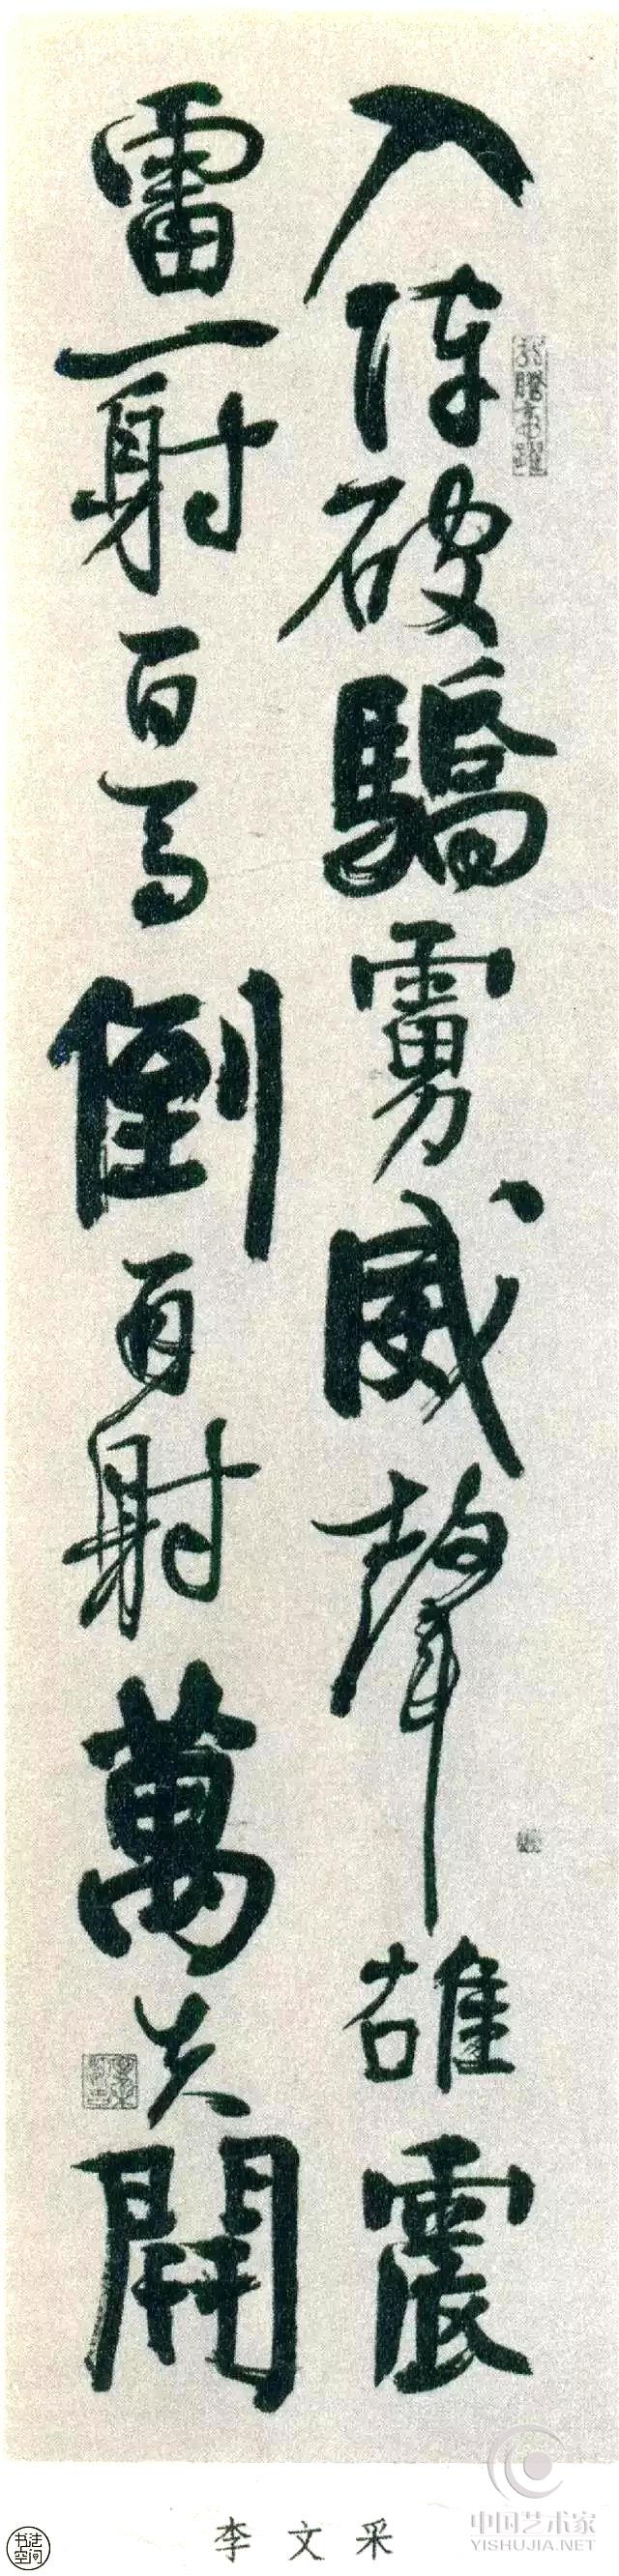 入陣破驕虜威聲雄震
雷一射百馬倒再射萬夫開
李文采
书法空间
中国艺术家
YISHUJIA.NET